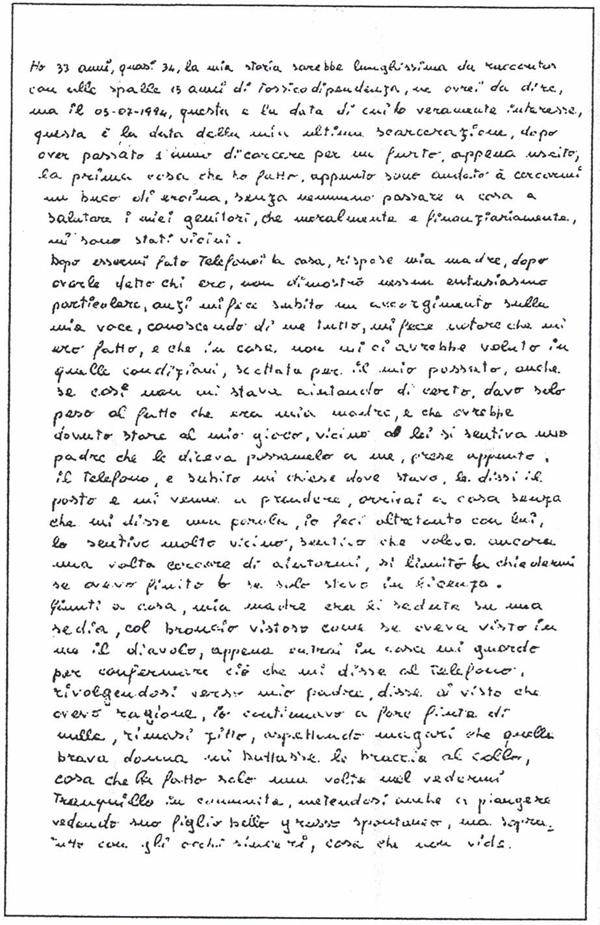 Ho 33 anni, quasi 34, la mia storia sarebbe lunghissima da raccontar
con alle spalle 15 anni di Tossicodipendenza, ne avrei da dire,
ma il 05-07-1994, questa è la data di cui ho veramente interesse,
questa è la data della mia ultima scarcerazione, dopo
aver passato 1 anno di carcere per un furto, appena uscito,
la prima cosa che ho fatto, appunto sono andato à cercarmi
un buco di eroina, senza nemmeno passare a casa a
salutare i miei genitori, che moralmente e finanziariamente,
mi sono stati vicini.
Dopo essermi fato Telefonai à casa, rispose mia madre, dopo
averle detto chi ero, non dimostrò nessun entusiasmo
particolare, anzi mi fece subito un accorgimento sulla
mia voce, conoscendo di me tutto, mi fece notare che mi
ero fatto, e che in casa non mi ci avrebbe voluto in
quelle condizioni, scottata per il mio passato, anche
se così non mi stava aiutando di certo, davo solo
peso al fatto che era mia madre, e che avrebbe
dovuto stare al mio gioco, vicino a lei si sentiva mio
padre che le diceva passamelo a me, prese appunto,
il Telefono, e subito mi chiese dove stavo, le dissi il
posto e mi venne a prendere, arrivai a casa senza
che mi disse una parola, io feci altretanto con lui,
lo sentivo molto vicino, sentivo che voleva ancora
una volta cercare di aiutarmi, si limitò a chiedermi
se avevo finito o se solo stavo in licenza.
Giunti a casa, mia madre era lì seduta su una
sedia, col broncio vistoso come se aveva visto in
me il diavolo, appena entrai in casa mi guardo
per confermare ciò che mi disse al Telefono,
rivolgendosi verso mio padre, disse ai visto che
avevo ragione, io continuavo a fare finta di
nulla, rimasi zitto, aspettando magari che quella
brava donna mi buttasse le braccia al collo,
cosa che ha fatto solo una volta nel vedermi
Tranquillo in comunità, metendosi anche a piangere
vedendo suo figlio bello grasso spontanio, ma sopra-
tutto con gli occhi sinceri, cosa che non vide.